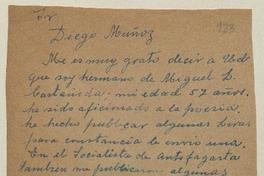 Sr
123
Diego Muñoz
Me es muy grato decir a Ud
que soy hermano de Miguel L.
Castañeda. mi edad 57 años.
he sido aficionado a la poesia
he hecho publicar algunas Liras
para constancia le envio una.
En el Socialista de Antofagasta
tambien me publicaron algunas